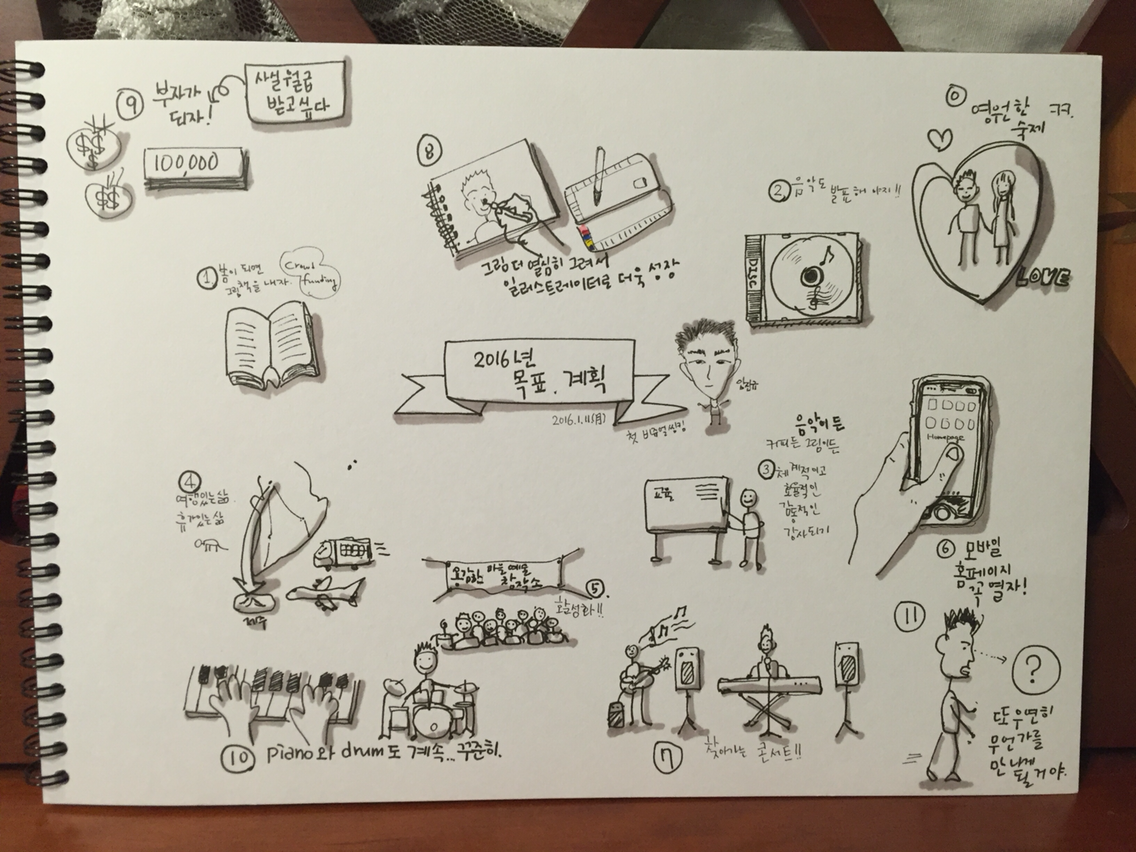 ⑨ 부자가
되자!
사실 월급
받고싶다
$$
$$
100,000
⑧
그림 더 열심히 그려서
일러스트레이터로 더욱 성장
⓪ 영원한 ㅋㅋ.
숙제
LOVE
② 음악도 발표해야지!!
DISC
① 봄이 되면
그림책을 내자.
Crowd
funding
2016년
목표. 계획
2016.1.11(月)
첫 비쥬얼씽킹
임진규
음악이든
커피든 그림이든
③ 체계적이고
효율적인
감동적인
강사되기
교육
Homepage
⑥ 모바일
홈페이지
꼭 열자!
④
여행있는삶.
휴가있는삶
제주
용감한 마을예술
창작소
⑤.
활성화!!
⑩ piano와 drum도 계속... 꾸준히.
⑦ 찾아가는 콘서트!!
⑪
?
또 우연히
무언가를
만나게
될거야.